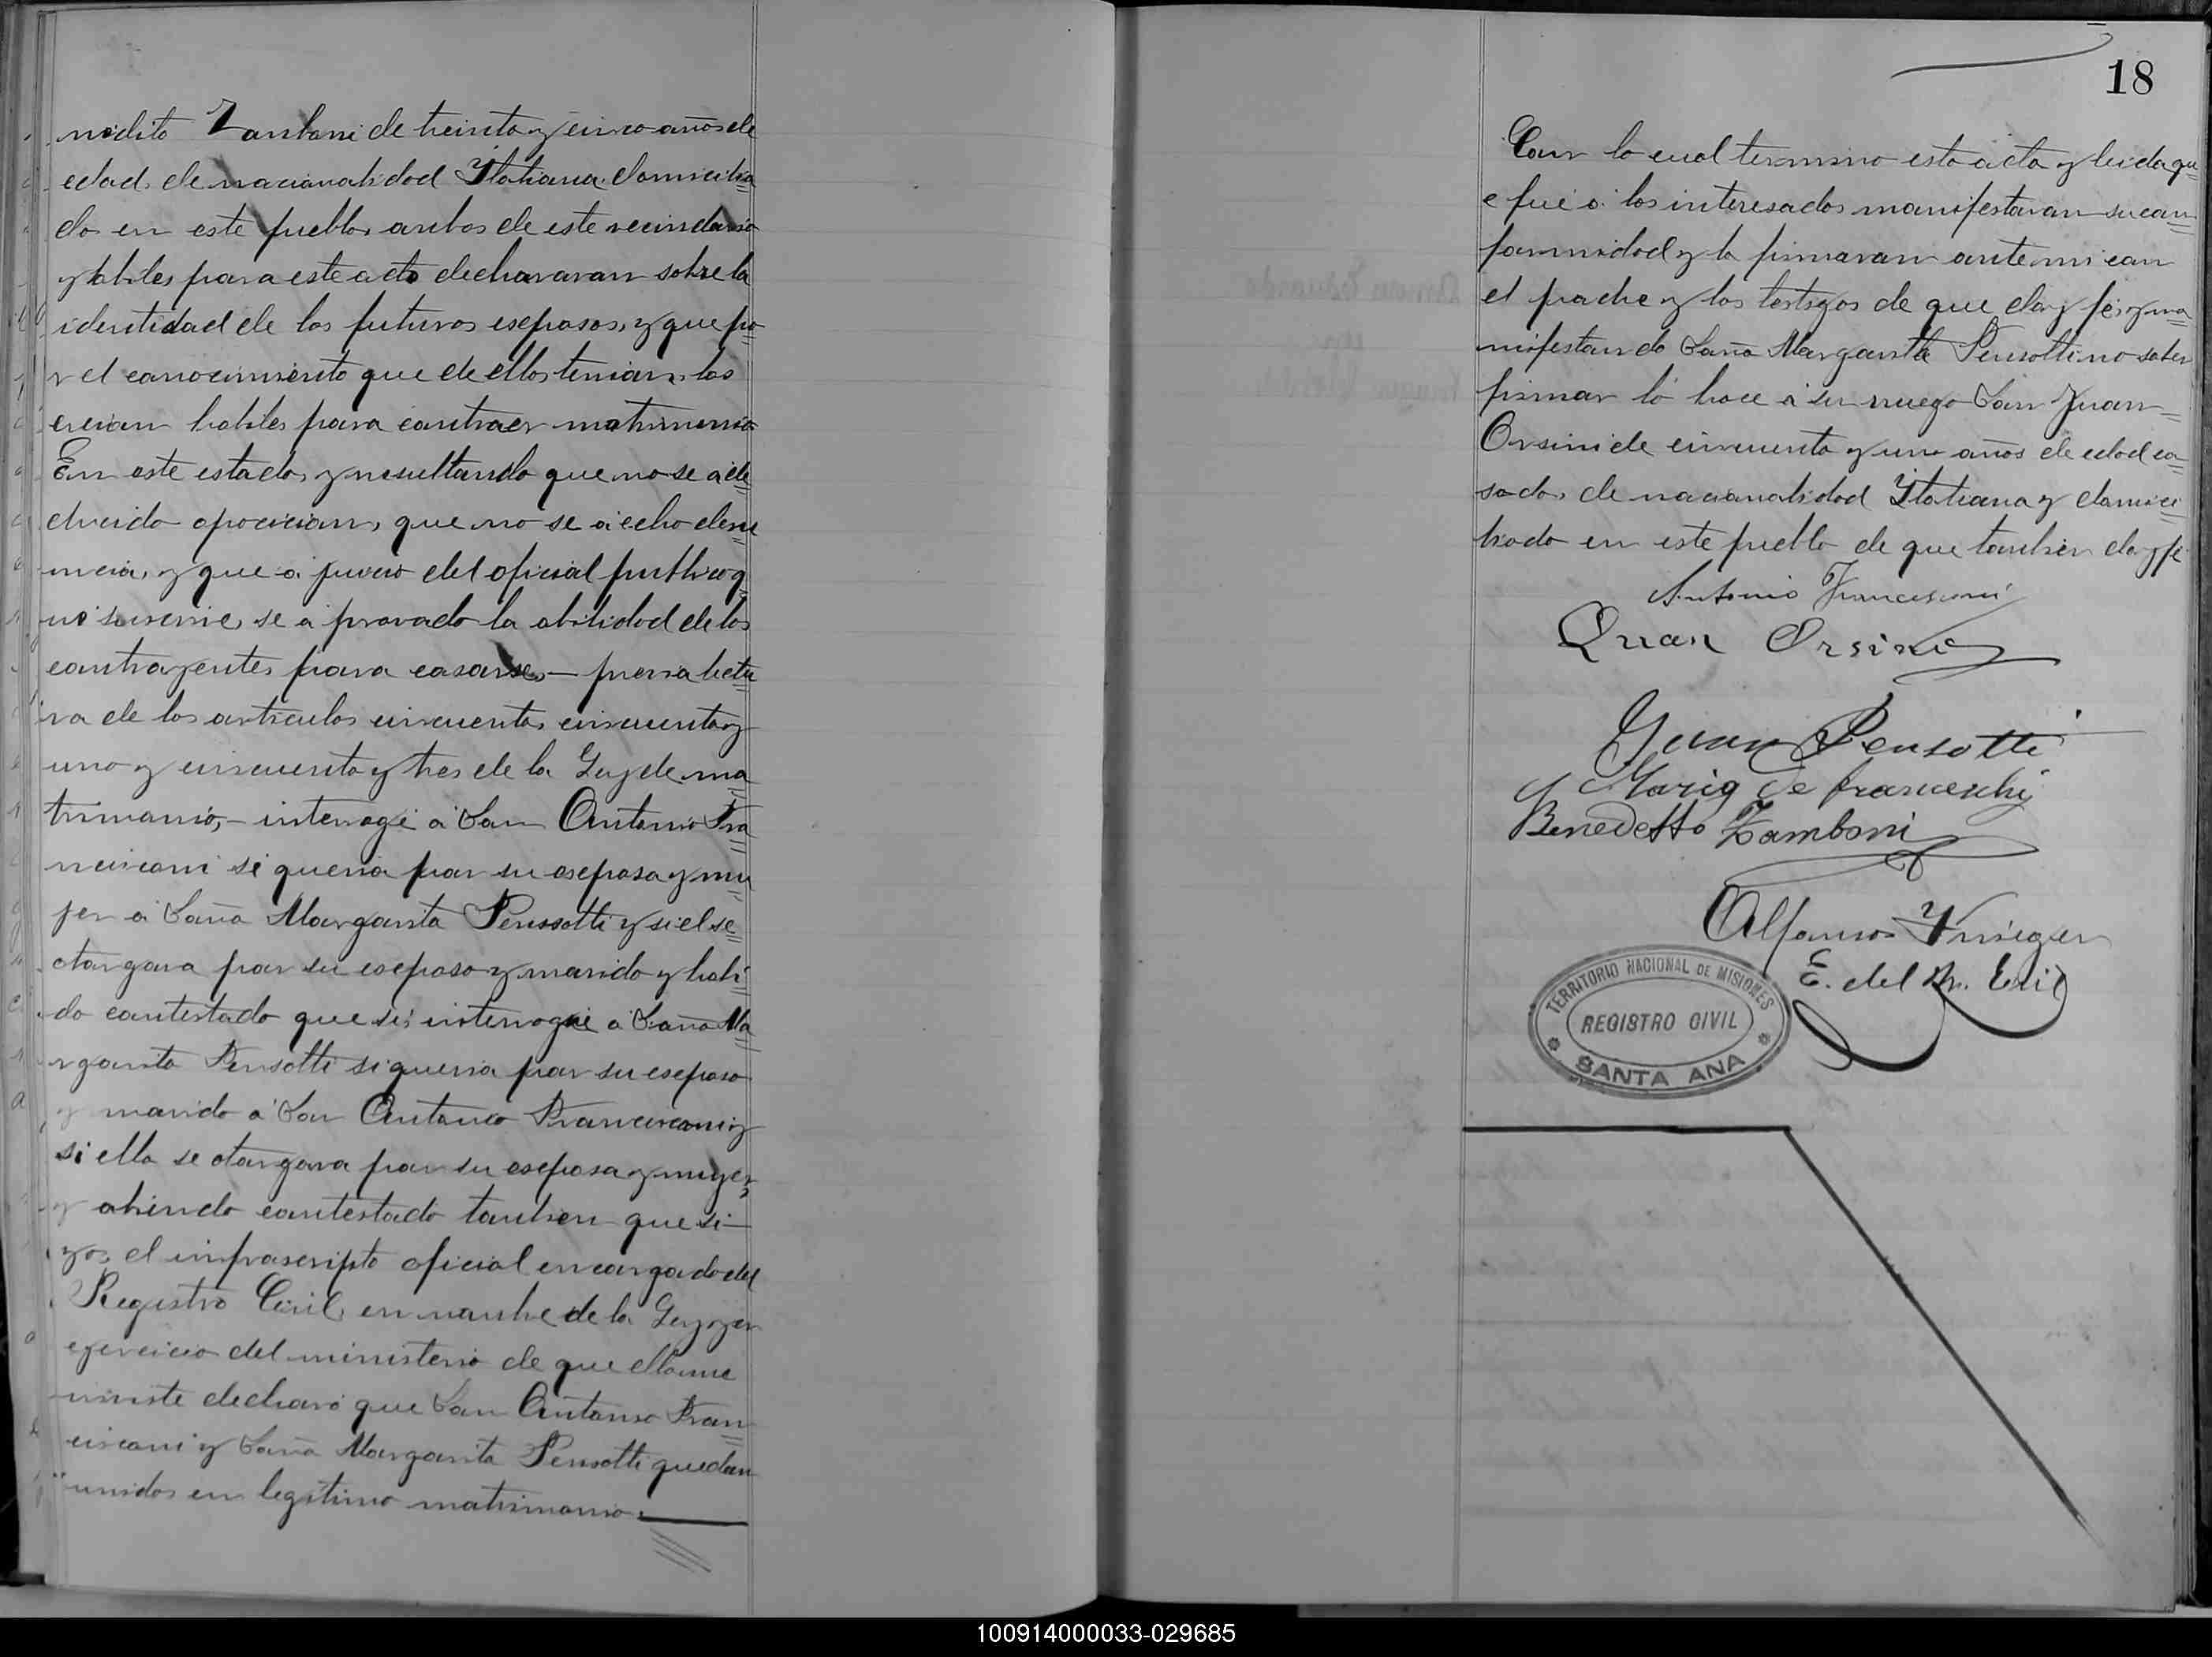 nedito Zamboni de treinta y cinco años de
edad, de nacionalidad Ytatiana, domicilia
do en este pueblo, anbos de este vecindario
y abiles para este acto declararan sobre la
identidad de los futuros esposos, y que po
r el conocimiento que de ellos tenian, los
creian habiles para contraer matrimonio
En este estado, y resultando que no se a de
ducido opocicion, que no se a echo denu
ncia, y que a juicio del oficial publico q
ue suscrive, se a provado la abilidad de los
contrayentes para casarse, — previa lectu
ra de los articulos cincuenta, cincuenta y
uno y cincuenta y tres de la Ley de ma
trimonio, — interrogé á Don Antonio Fra
ncisconi si queria por su esposa y mu
jer a Doña Margarita Pensotti y si el se
otorgava por su esposo y marido y habi
do contestado que si; interrogué a Doña Ma
rgarita Pensotti si queria por su esposo
y marido a Don Antonio Francisconi y
si ella se otorgava por su esposa y mujer,
y abiendo contestado tanbien que si —
yo, el infrascripto oficial encargado del
Registro Civil, en nonbre de la Ley y en
ejercicio del ministerio de que ella me
inviste declaro que Don Antonio Fran
cisconi y Doña Margarita Pensotti quedan
unidos en legitimo matrimonio.
18
Con lo cual termino esta acta y leida qu
e fue a los interesados manifestaron su con
formidad y la firmaron ante mi con
el padre y los testigos de que doy fe; y ma
nifestando Doña Margarita Pensotti no saber
firmar lo hace á su ruego Don Juan
Orsini de cincuenta y uno años de edad ca
sado, de nacionalidad Ytatiana y domici
liado en este pueblo de que tanbien doy fe
Antonio Francisconi
Quan Orsini
Guan Pensotti
Mario De franceschi
Benedetto Zamboni
Alfonso Krieger
E. del R. Civil
TERRITORIO NACIONAL DE MISIONES
REGISTRO CIVIL
SANTA ANA
100914000033-029685